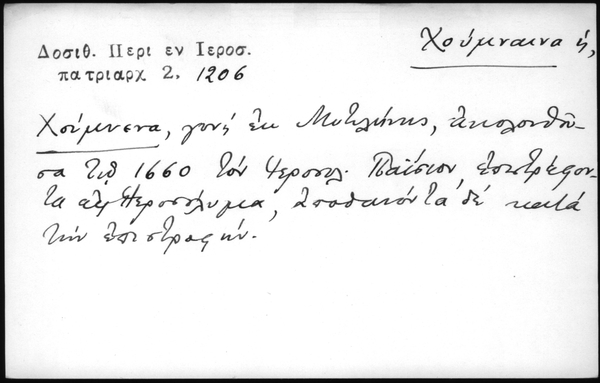 Δοσιθ. Περι εν Ιεροσ.
πατριαρχ 2. 1206
Χούμναινα ἡ,
Χούμνενα, γυνή ἐκ Μυτιλήνης, ἀκολουθῦ-
σα τῷ 1660 τόν Ἱεροσολ. Παΐσιον, ἐπιστρέφον-
τα εἰς Ἱεροσόλυμα, ἀποθανόντα δέ κατά
τήν ἐπιστροφήν.